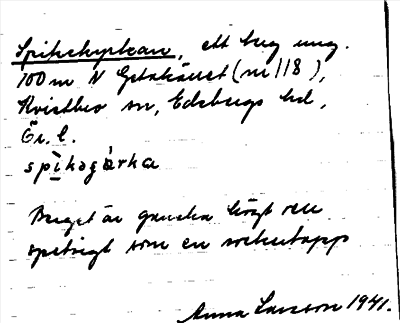 Spikakyrkan, ett berg ung.
100 m N Getakärret (nr 118),
Kvistbro sn, Edsbergs hd,
Ör. l.
spìkagárka
Berget är ganska högt och
spetsigt som en sockertopp
Anna Larsson 1941.